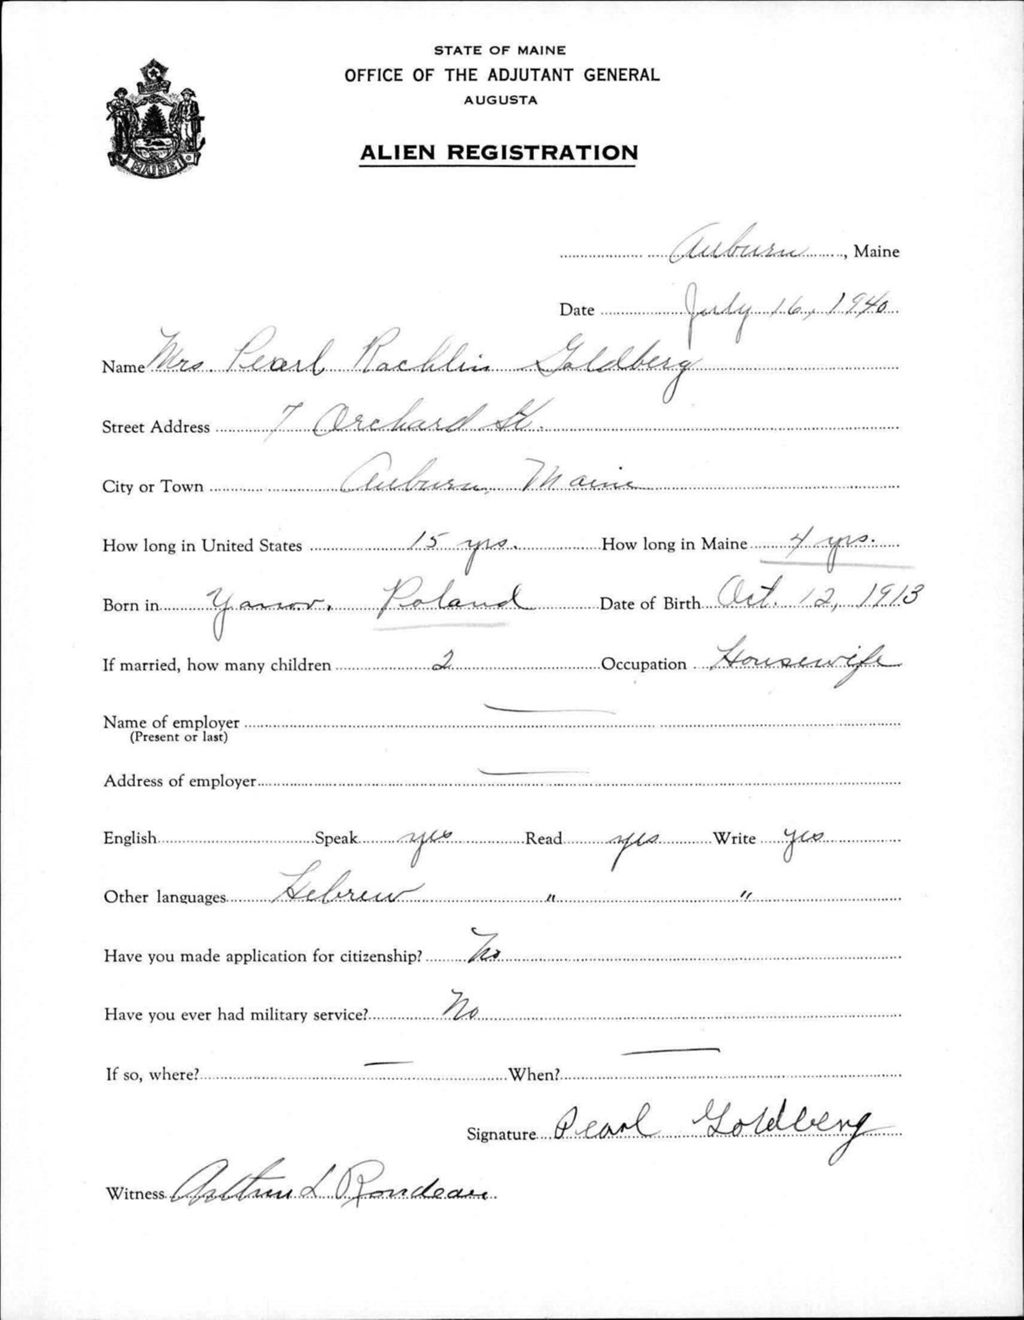 STATE OF MAINE
OFFICE OF THE ADJUTANT GENERAL
AUGUSTA
ALIEN REGISTRATION
MAINE
Auburn, Maine
Date July 16, 1940
Name Mrs. Pearl Rachlin Goldberg
Street Address 7 Orchard St.
City or Town Auburn, Maine
How long in United States 15 yrs. How long in Maine 4 yrs.
Born in Yanov, Poland Date of Birth Oct. 12, 1913
If married, how many children 2 Occupation Housewife
Name of employer —
(Present or last)
Address of employer —
English Speak yes Read yes Write yes
Other languages Hebrew " "
Have you made application for citizenship? No
Have you ever had military service? No
If so, where? — When? —
Signature Pearl Goldberg
Witness Arthur L Rondeau